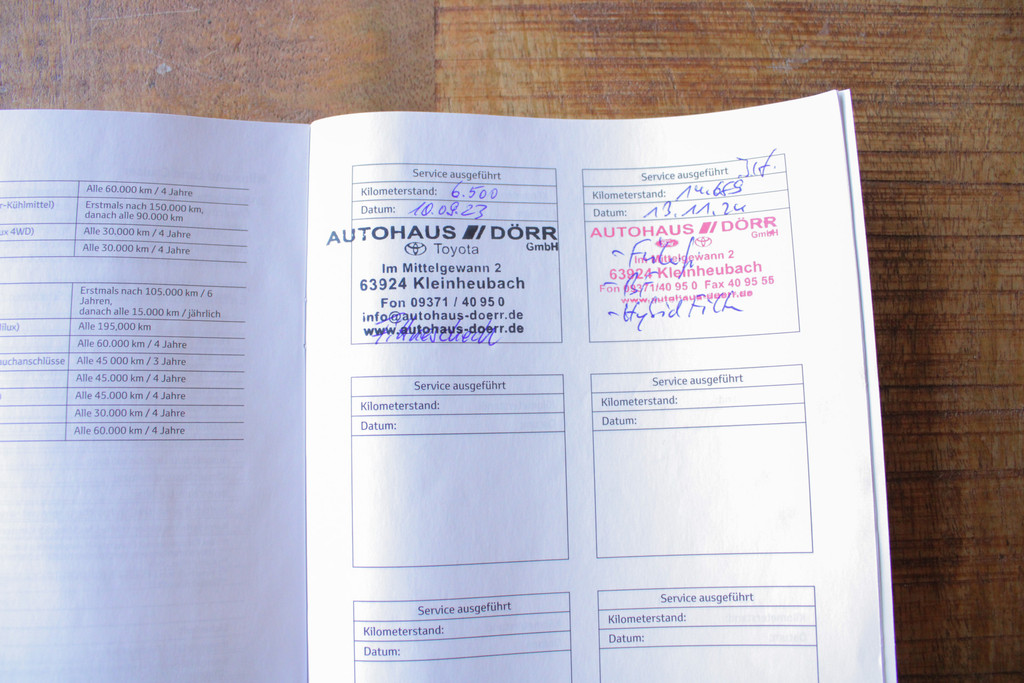 Alle 60.000 km / 4 Jahre
r-Kühlmittel)
Erstmals nach 150.000 km,
danach alle 90.000 km
ux 4WD)
Alle 30.000 km / 4 Jahre
Alle 30.000 km / 4 Jahre
Erstmals nach 105.000 km / 6
Jahren,
danach alle 15.000 km / jährlich
ilux)
Alle 195,000 km
Alle 60.000 km / 4 Jahre
auchanschlüsse
Alle 45 000 km / 3 Jahre
Alle 45.000 km / 4 Jahre
Alle 45.000 km / 4 Jahre
Alle 30.000 km / 4 Jahre
Alle 60.000 km / 4 Jahre
Service ausgeführt
Kilometerstand: 6.500
Datum: 18.09.23
AUTOHAUS DÖRR
Toyota GmbH
Im Mittelgewann 2
63924 Kleinheubach
Fon 09371 / 40 95 0
info@autohaus-doerr.de
www.autohaus-doerr.de
Service ausgeführt
Kilometerstand: 14.689
Datum: 13.11.24
AUTOHAUS DÖRR
GmbH
Im Mittelgewann 2
63924 Kleinheubach
Fon 09371/40 95 0 Fax 40 95 55
www.autohaus-doerr.de
Service ausgeführt
Kilometerstand:
Datum:
Service ausgeführt
Kilometerstand:
Datum:
Service ausgeführt
Kilometerstand:
Datum:
Service ausgeführt
Kilometerstand:
Datum: